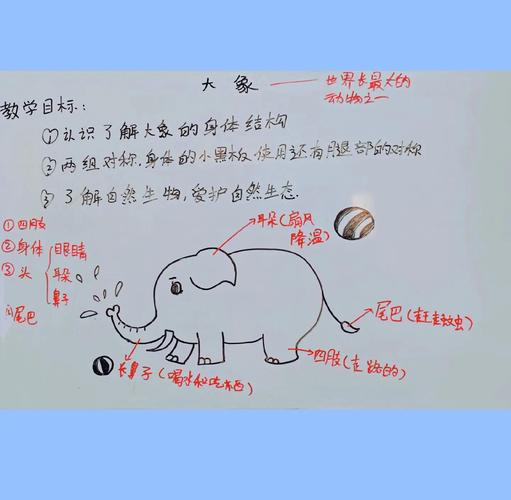 大象
世界长最大的
动物之一
教学目标:
①认识了解大象的身体结构
②两组对称,身体的小黑板使用还有腿部的对称
③了解自然生物,爱护自然生态.
①四肢
②身体
③头
眼睛
耳朵
鼻子
尾巴
耳朵(扇风
降温)
尾巴(赶走蚊虫)
四肢(走路的)
长鼻子(喝水和吃东西)